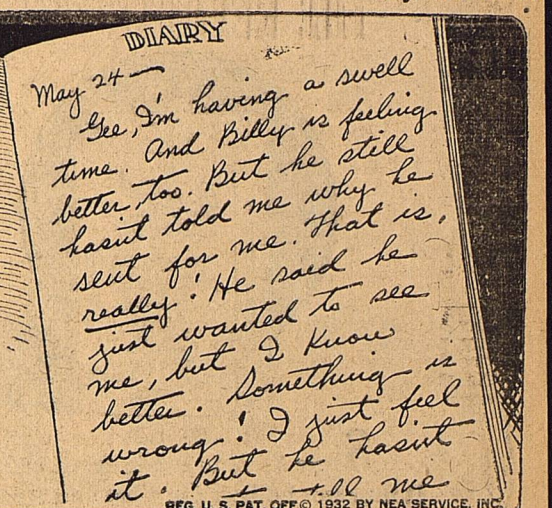 DIARY
May 24 —
Gee, I'm having a swell
time. And Billy is feeling
better, too. But he still
hasn't told me why he
sent for me. That is,
really! He said he
just wanted to see
me, but I know
better. Something is
wrong! I just feel
it. But he hasn't
me
REG. U. S. PAT. OFF. © 1932 BY NEA SERVICE, INC.